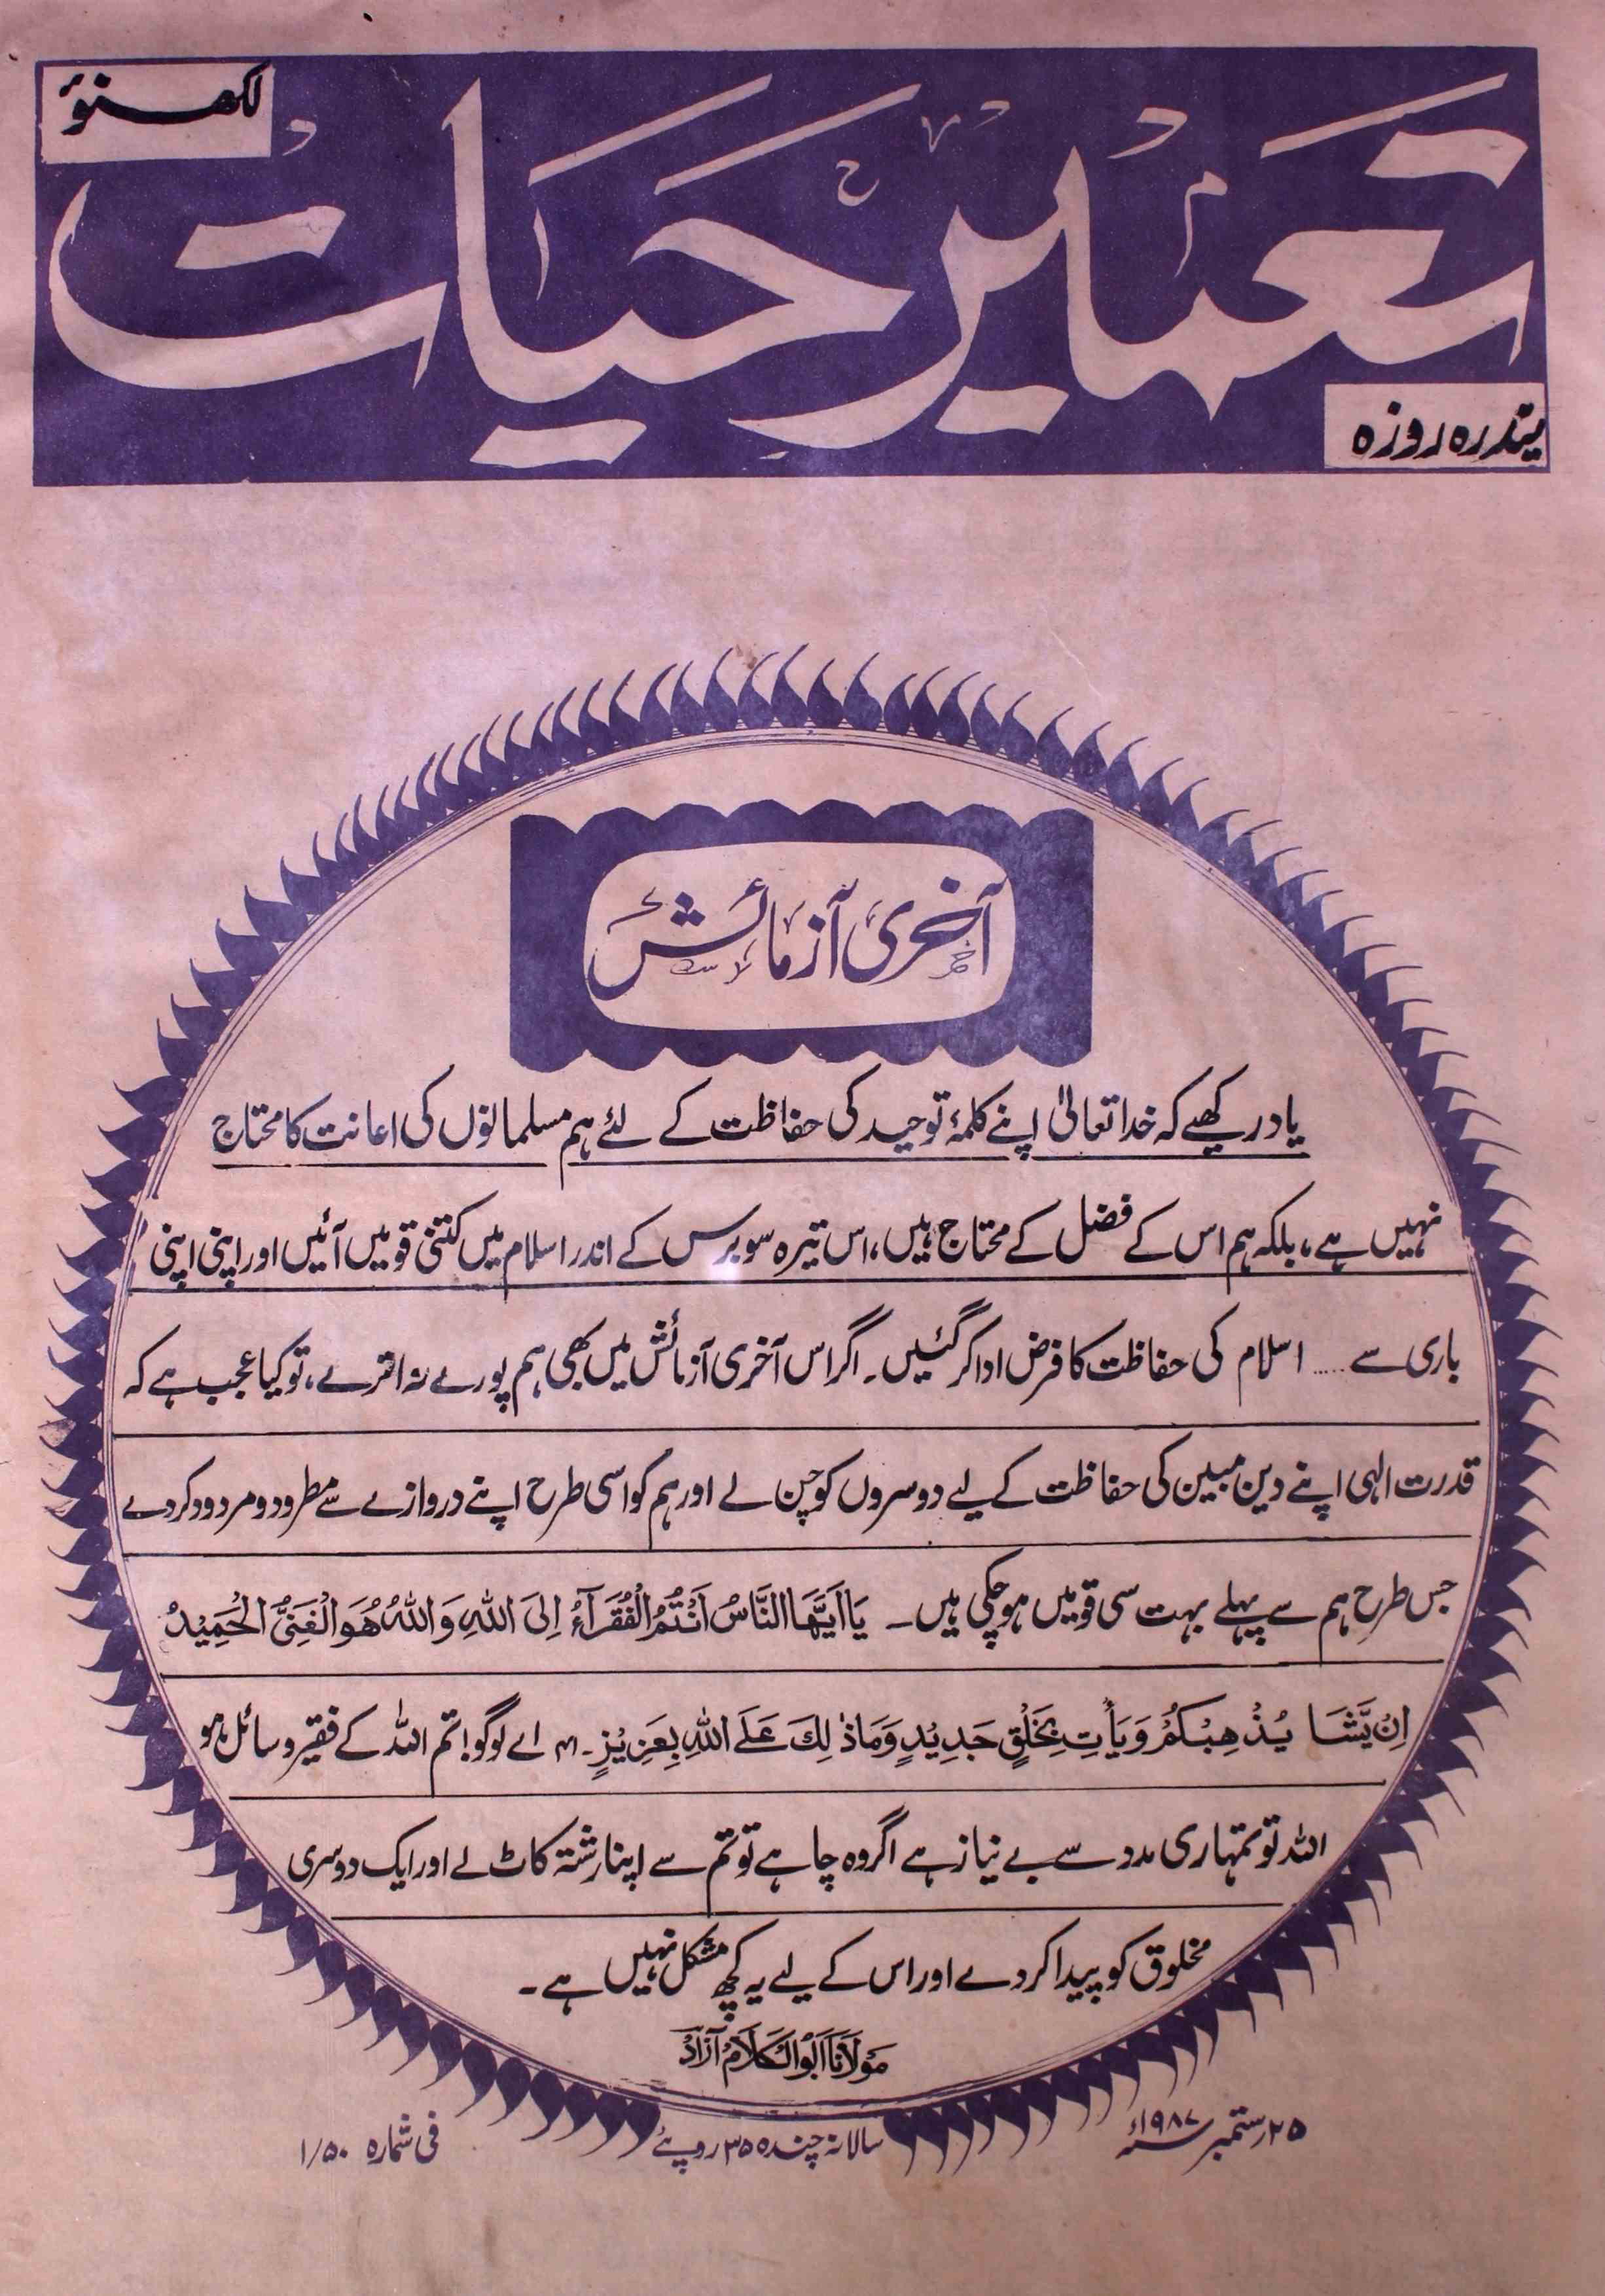 لکھنؤ
تعمیر حیات
پندرہ روزہ
آخری آزمائش
یاد رکھیے کہ خدا تعالیٰ اپنے کلمۂ توحید کی حفاظت کے لئے ہم مسلمانوں کی اعانت کا محتاج
نہیں ہے، بلکہ ہم اس کے فضل کے محتاج ہیں، اس تیرہ سو برس کے اندر اسلام میں کتنی قومیں آئیں اور اپنی اپنی
باری سے ..... اسلام کی حفاظت کا فرض ادا کر گئیں۔ اگر اس آخری آزمائش میں بھی ہم پورے نہ اترے، تو کیا عجب ہے کہ
قدرت الہی اپنے دین مبین کی حفاظت کے لیے دوسروں کو چن لے اور ہم کو اسی طرح اپنے دروازے سے مطرود و مردود کر دے
جس طرح ہم سے پہلے بہت سی قومیں ہو چکی ہیں۔ يَا اَيُّهَا النَّاسُ اَنْتُمُ الْفُقَرَآءُ اِلَى اللّٰهِ وَاللّٰهُ هُوَ الْغَنِيُّ الْحَمِيْدُ
اِنْ يَّشَا يُذْهِبْكُمْ وَيَأْتِ بِخَلْقٍ جَدِيْدٍ وَمَا ذٰلِكَ عَلَى اللّٰهِ بِعَزِيْزٍ۔ اے لوگو! تم اللہ کے فقیر و سائل ہو
اللہ تو تمہاری مدد سے بے نیاز ہے اگر وہ چاہے تو تم سے اپنا رشتہ کاٹ لے اور ایک دوسری
مخلوق کو پیدا کر دے اور اس کے لیے یہ کچھ مشکل نہیں ہے۔
مَوْلَانَا اَبُوالْکَلَامْ آزَادْ
۲۵ ستمبر ۱۹۸۷ء
سالانہ چندہ ۳۵ روپئے
فی شمارہ ۱/۵۰